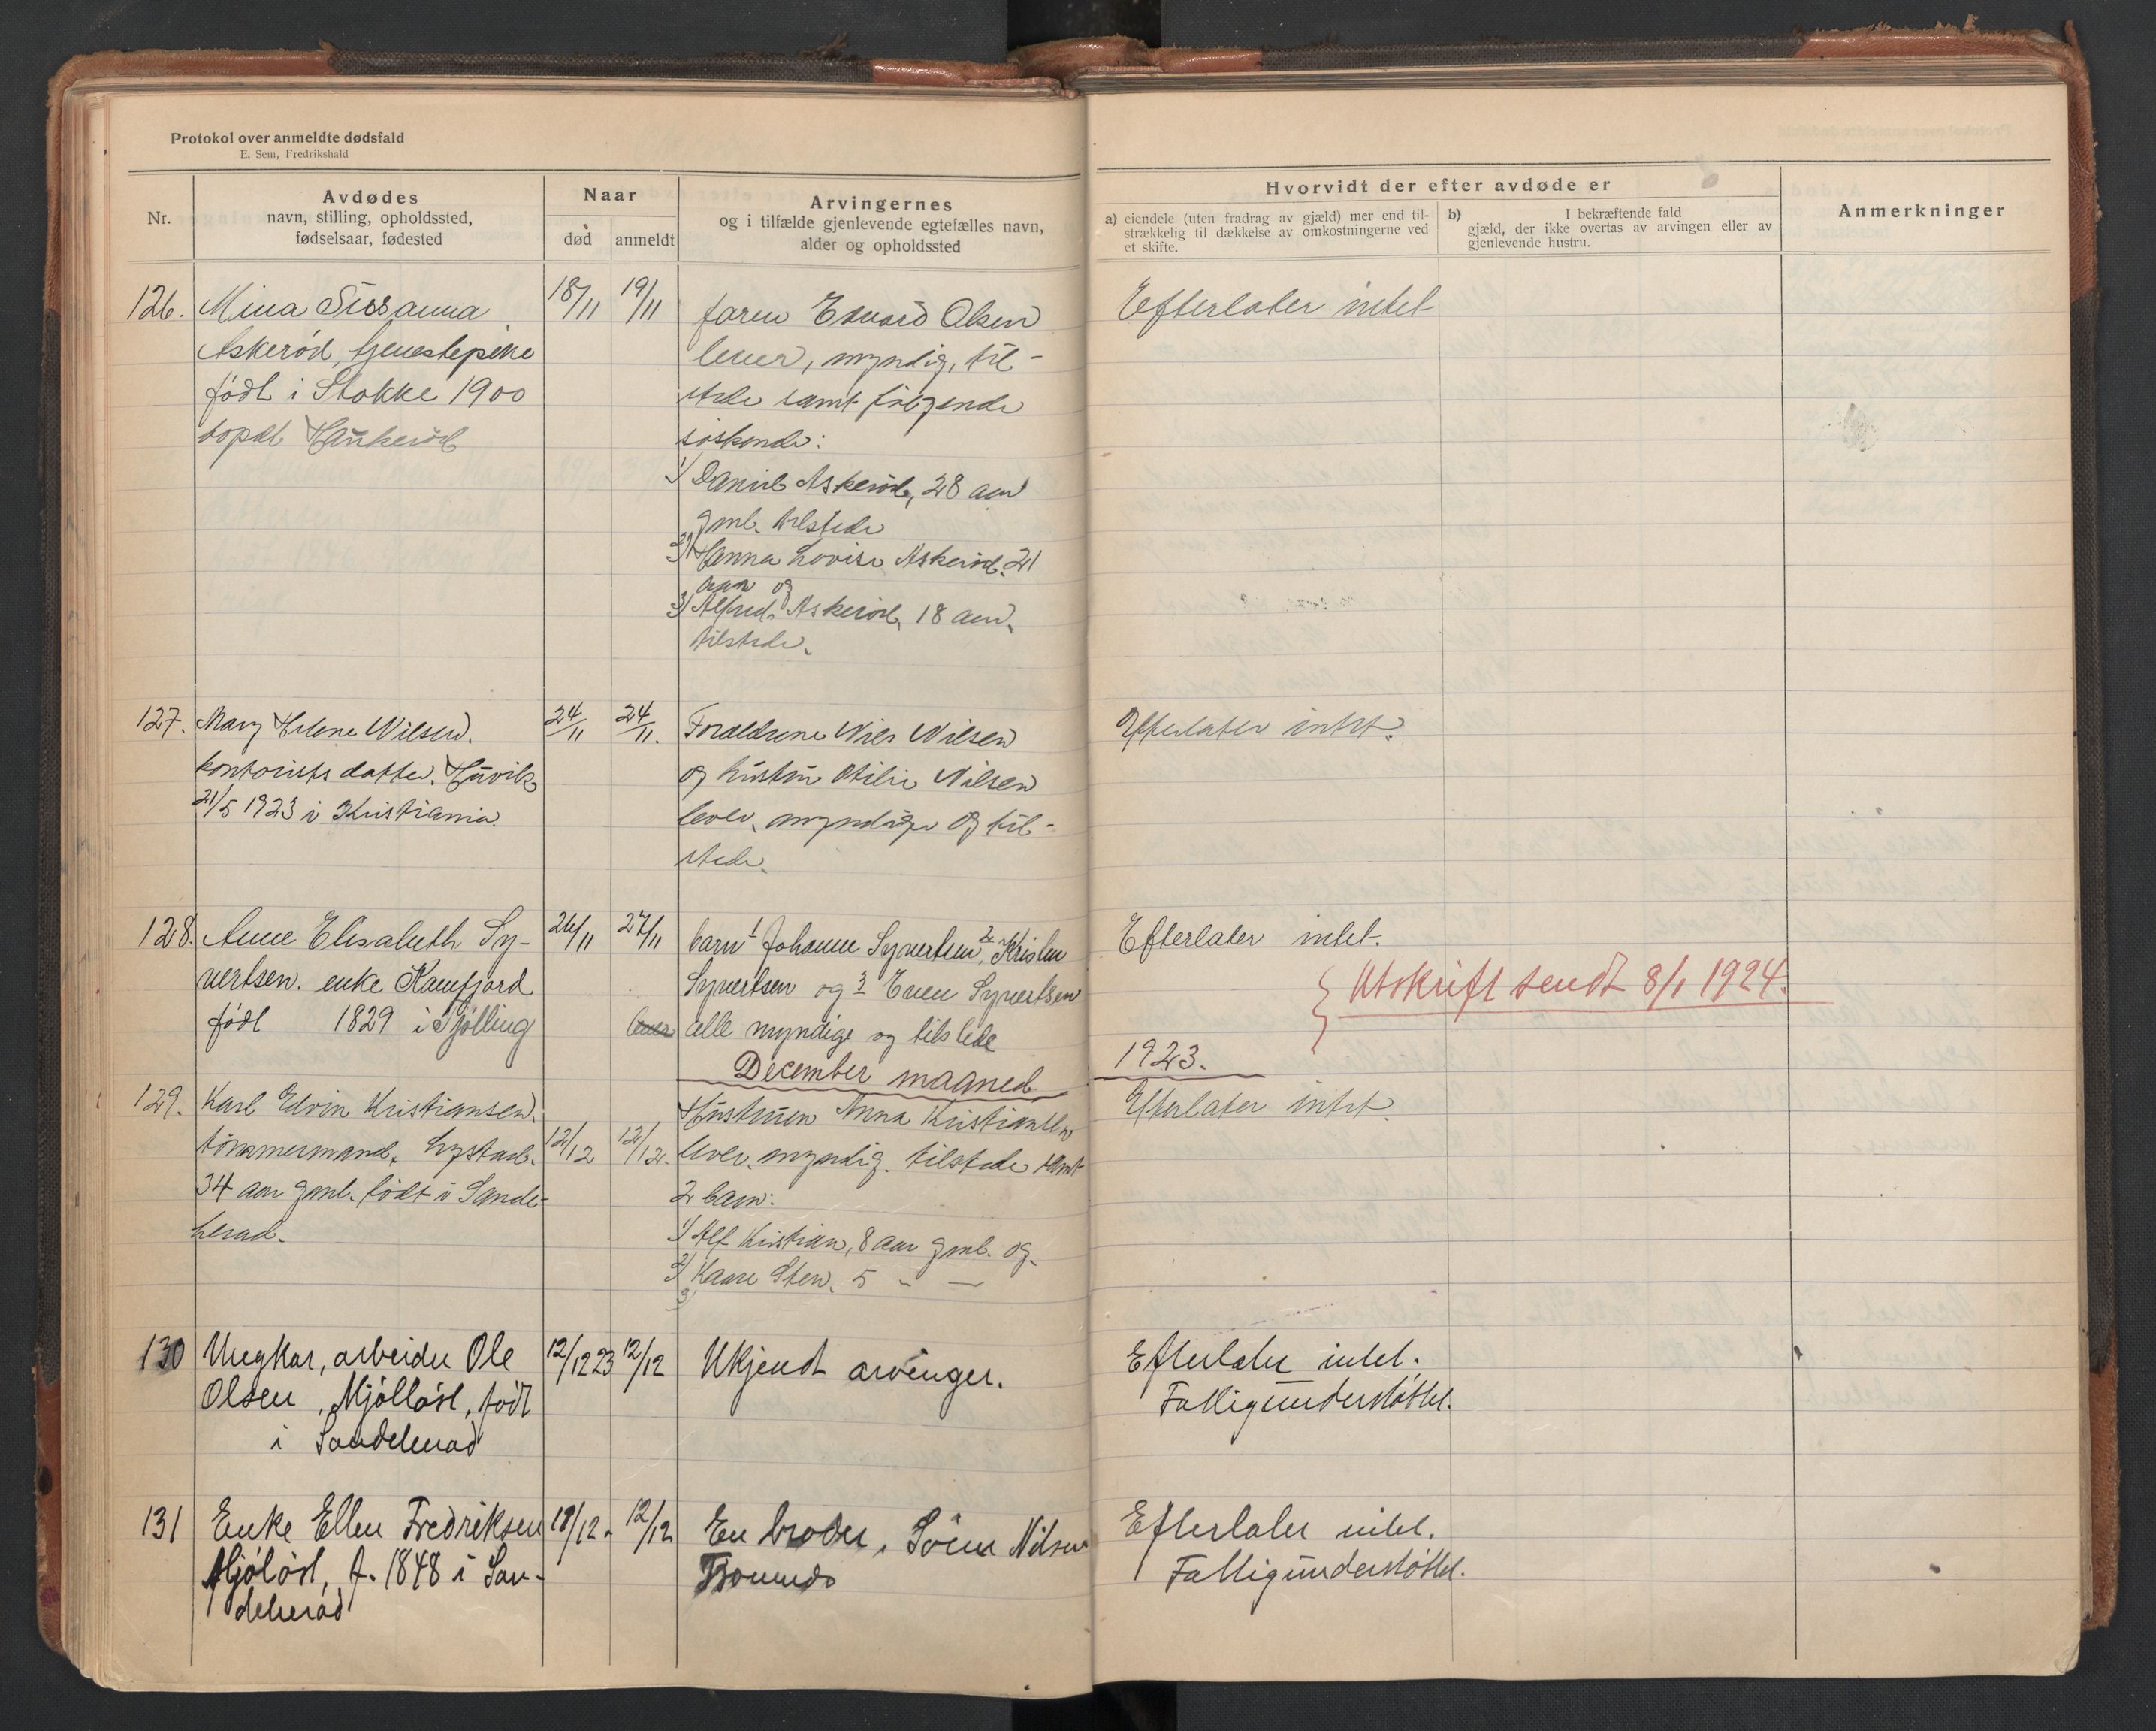 Protokol over anmeldte dødsfald
E. Sem, Fredrikshald
Nr.
Avdødes
navn, stilling, opholdssted,
fødselsaar, fødested
Naar
død
anmeldt
Arvingernes
og i tilfælde gjenlevende egtefælles navn,
alder og opholdssted
Hvorvidt der efter avdøde er
a) eiendele (uten fradrag av gjæld) mer end til-
strækkelig til dækkelse av omkostningerne ved
et skifte.
b) I bekræftende fald
gjæld, der ikke overtas av arvingen eller av
gjenlevende hustru.
Anmerkninger
126. Mina Susanna
Askerød, tjenestepike
født i Stokke 1900
bopæl Haukerød
18/11
19/11
faren Edvard Olsen
lever, myndig, til-
stede samt følgende
søskende:
1/ Daniel Askerød, 28 aar
gml. tilstede
2/ Hanna Lovise Askerød. 21
aar og
3/ Alfred Askerød, 18 aar,
tilstede.
Efterlater intet
127. Mary Helene Nilsen.
kontorists datter. Huvik
21/5 1923 i Kristiania.
24/11
24/11.
Foraldrene Nils Nilsen
og hustru Otilie Nilsen
lever, myndige og til-
stede.
Efterlater intet.
128. Anne Elisabeth Sy-
vertsen. enke Kamfjord
født 1829 i Tjølling
26/11
27/11
barn 1 Johanne Syvertsen, 2 Kristen
Syvertsen og 3 Even Syvertsen
lever alle myndige og tilstede
Efterlater intet.
Utskrift sendt 8/1 1924.
December maaned
1923.
129. Karl Edvin Kristiansen.
tømmermand, Lystad.
34 aar gml. født i Sande-
herad.
12/12
12/12.
Hustruen Anna Kristiansen
lever. myndig. tilstede samt
2 barn:
1/ Alf Kristian, 8 aar gml. og
2/ Kaare Sten. 5 - —
Efterlater intet.
130 Ungkar, arbeider Ole
Olsen, Mjølløst, født
i Sandeherad
12/12 23
12/12
Ukjendt arvinger.
Efterlater intet.
Fattigunderstøttet.
131 Enke Ellen Fredriksen
Mjøløst, f. 1848 i San-
deherad
12/12
En broder, Søren Nilsen
Efterlater intet.
Fattigunderstøttet.